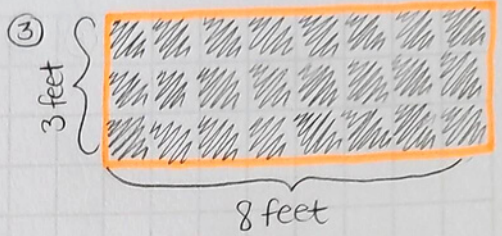 ③
3 feet
8 feet